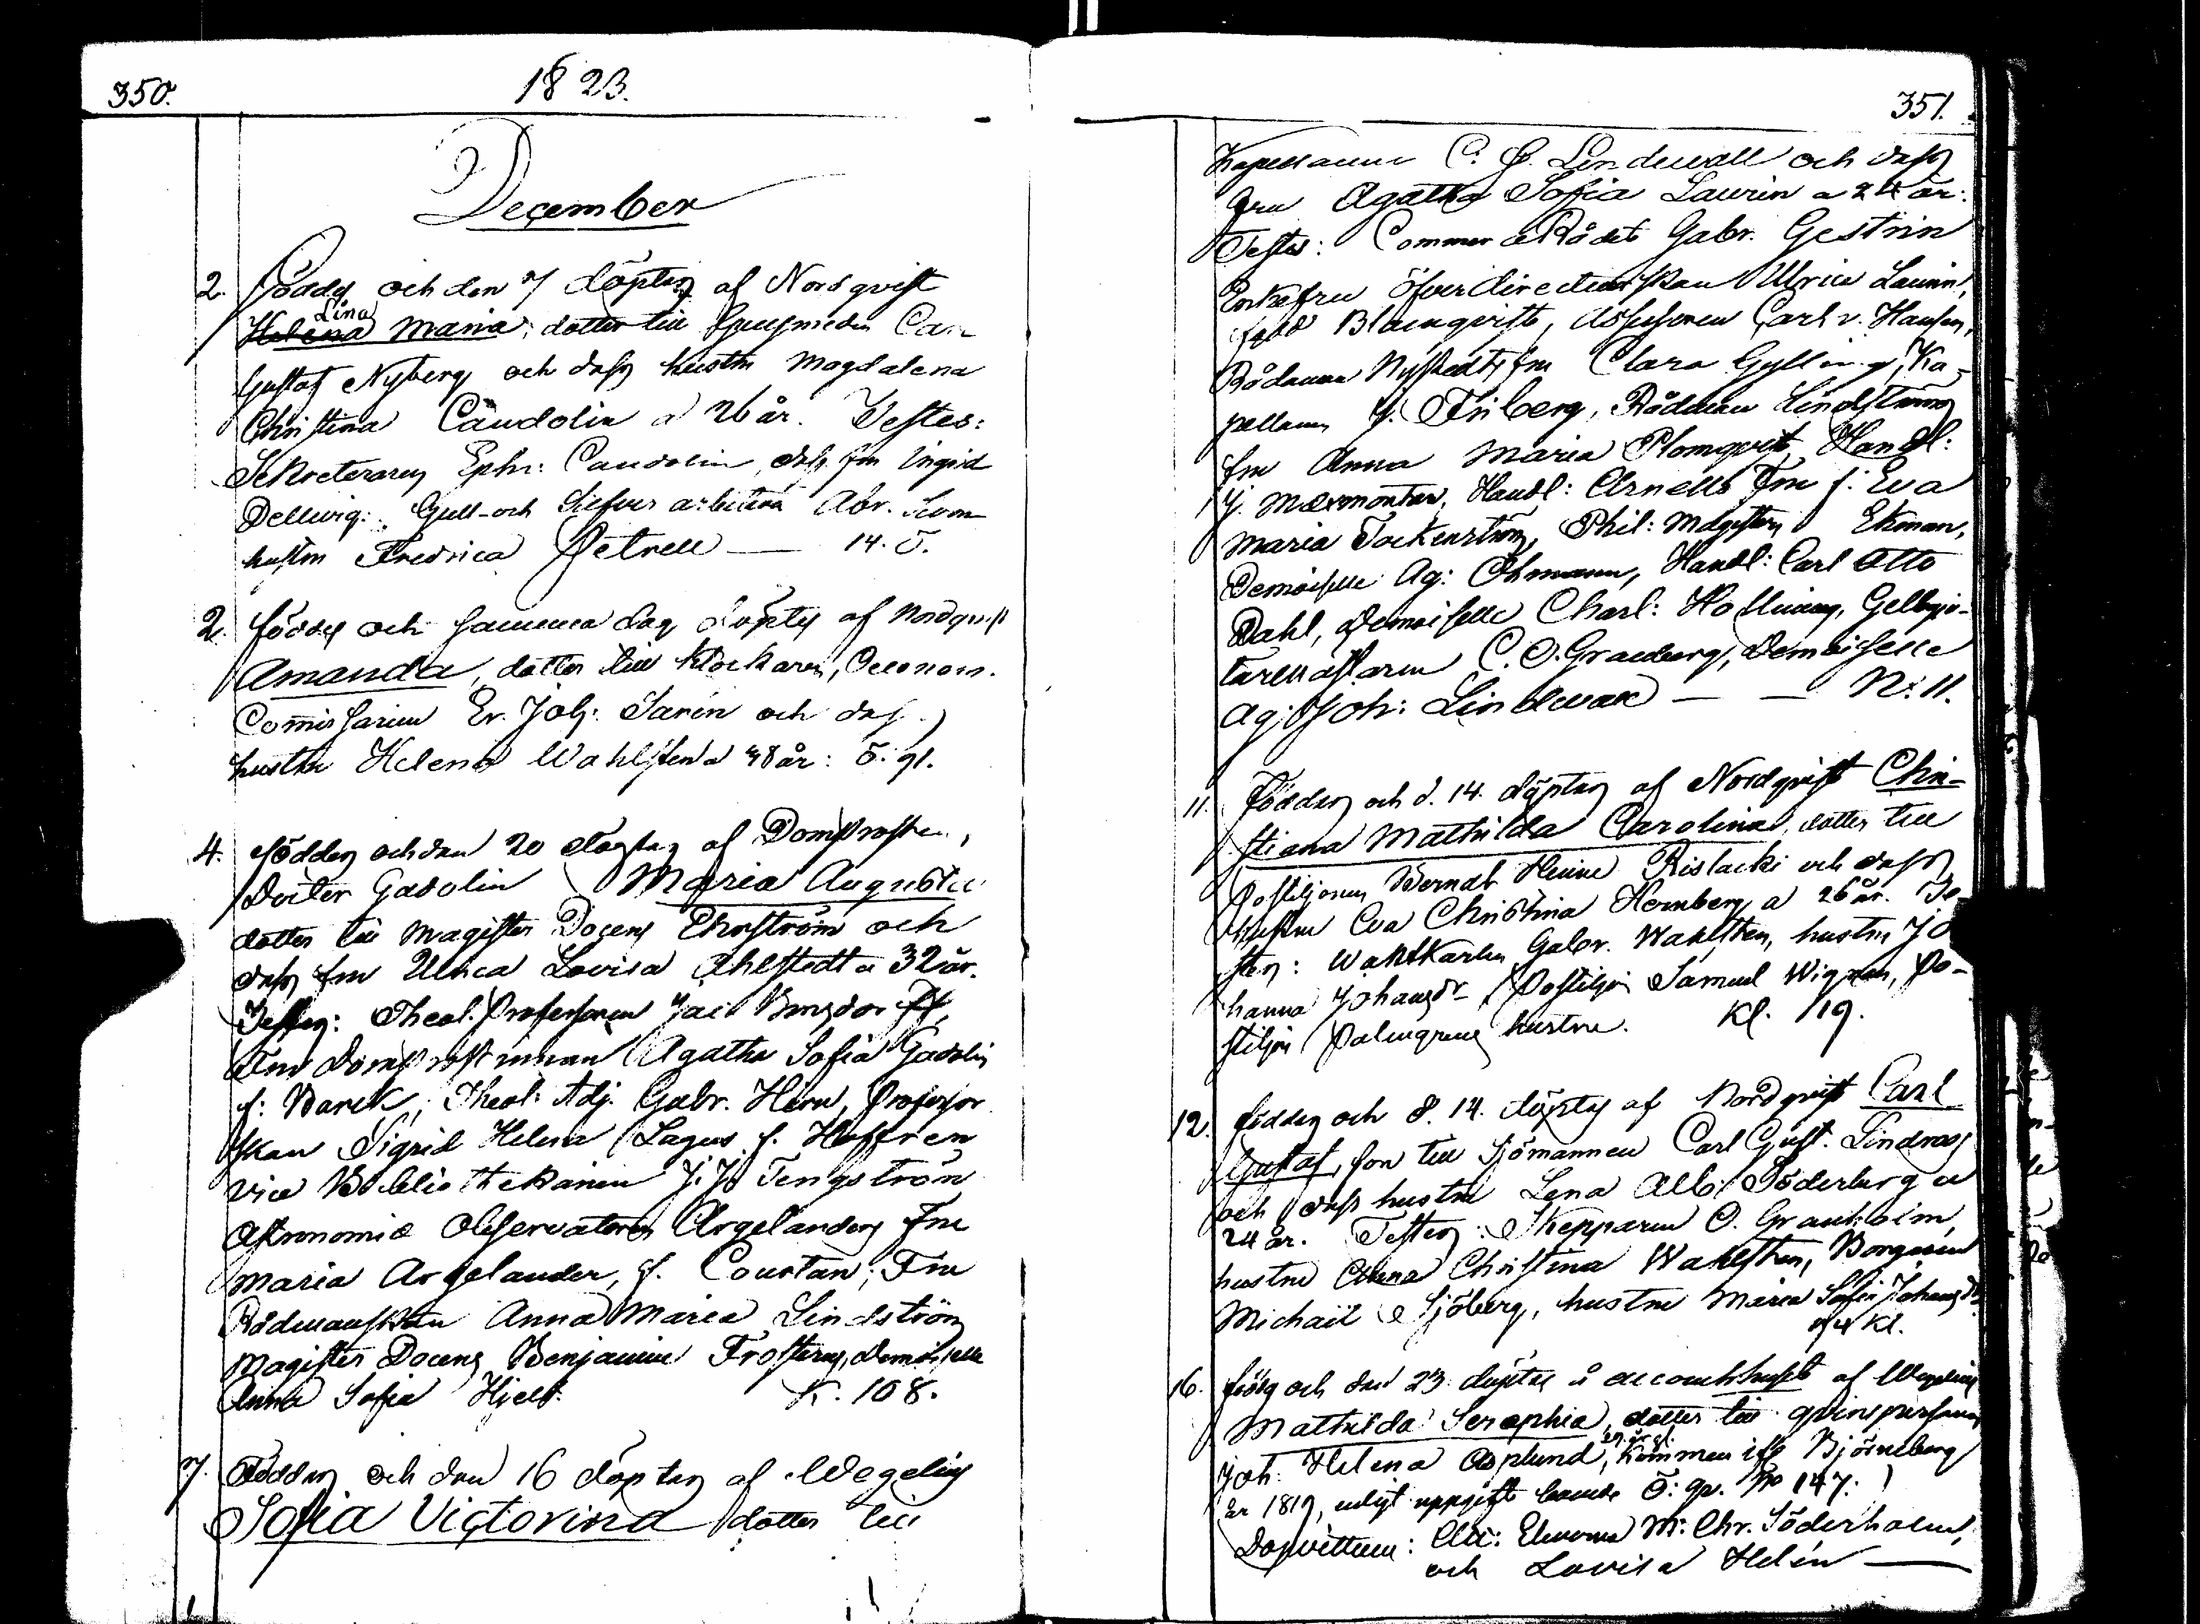 350.
1823.
December
2. Föddes och den 7 döptes af Nordqvist
Lina
Helena Maria, dotter till Carl
Gustaf Nyberg och dess hustru Magdalena
Christina Caudolin a 26 år. Testes:
Sekreteraren Ephr: Caudolin, dess fru Ingrid
Dellwig: Gull- och Silfver arbetaren Abr.
hustru Fredrica Petrell — 14. Ö.
2. föddes och samma dag döptes af Nordqvist
Amanda, dotter till klockaren, Oeconom.
Commissarien Er. Joh: Sarin och dess
hustru Helena Wahlsten a 48 år: Ö. 91.
4. föddes och den 20 döptes af Domprosten,
Docter Gadolin Maria Augusta
dotter till Magister Docens Ehrström och
dess fru Ulrica Lovisa Ahlstedt a 32 år.
Testes: Theol. Professoren Jac. Bonsdorff,
Fru Domprostinnan Agatha Sofia Gadolin
f: Barck, Theol: Adj. Gabr. Hirn, Professor
skan Sigrid Helena Lagus f. Haffren
vice Bibliothekarien J. J. Tengström
Astronomiæ Observatoren Argelanders Fru
Maria Argelander, f. Courtan; Fru
Rådmanskan Anna Maria Lindström
Magister Docens Benjamin Frosterus, Demoiselle
Anna Sofia Hjelt. K. 108.
7. Föddes och den 16 döptes af Wegelius
Sofia Victorina dotter till
351.
Kapellanen C. G. Lindewall och dess
fru Agatha Sofia Laurin a 24 år:
Testes: Commerce Rådet Gabr. Gestrin
Enkefru Öfverdirecteurskan Ulrica Laurin,
född Blomqvist, Assessoren Carl v. Hausen,
Rådman Nystedts fru Clara Gylling, Ka-
pellanen J. Friberg, Rådman Lindströms
fru Anna Maria Plomqvist, Handl:
J. Maexmontan, Handl: Arnells Fru f. Eva
Maria Tockenström, Phil: Magister Ekman,
Demoiselle Ag: Öhmann, Handl: Carl Otto
Dahl, Demoiselle Charl: Hollming, Gelbgju-
taremästaren C. O. Graeberg, Demoiselle
Ag. Joh: Lindewall — — N: 11.
11. Föddes och d. 14. döptes af Nordqvist Chri-
stiana Mathilda Carolina, dotter till
Postiljonen Berndt Rislacki och dess
hustru Eva Christina Hornberg a 26 år. Te-
stes: Waktkarlen Gabr. Wahlsten, hustru Jo
hanna Johansdr, Postiljon Samuel Wigman, Po-
stiljon Palmgrens hustru. Kl. 119.
12. föddes och d. 14. döptes af Nordqvist Carl
Gustaf, son till Sjömannen Carl Gust. Lindroos
och dess hustru Lena Alb: Söderberg a
24 år. Testes: Skepparen O. Granholm,
hustru Christina Wahlsten, Borgaren
Michail Sjöberg, hustru Maria Sofia Johansdr
Kl.
16. född och den 23. döptes å accouchhuset af Wegelius
Mathilda Seraphia, dotter till qvinspersonen
Joh: Helena Asplund, kommen ifr Björneborg
År 1819, enligt uppgift boende Ö: qv. No 147.
Dopvittnen: M: Chr. Söderholm,
och Lovisa Helén —